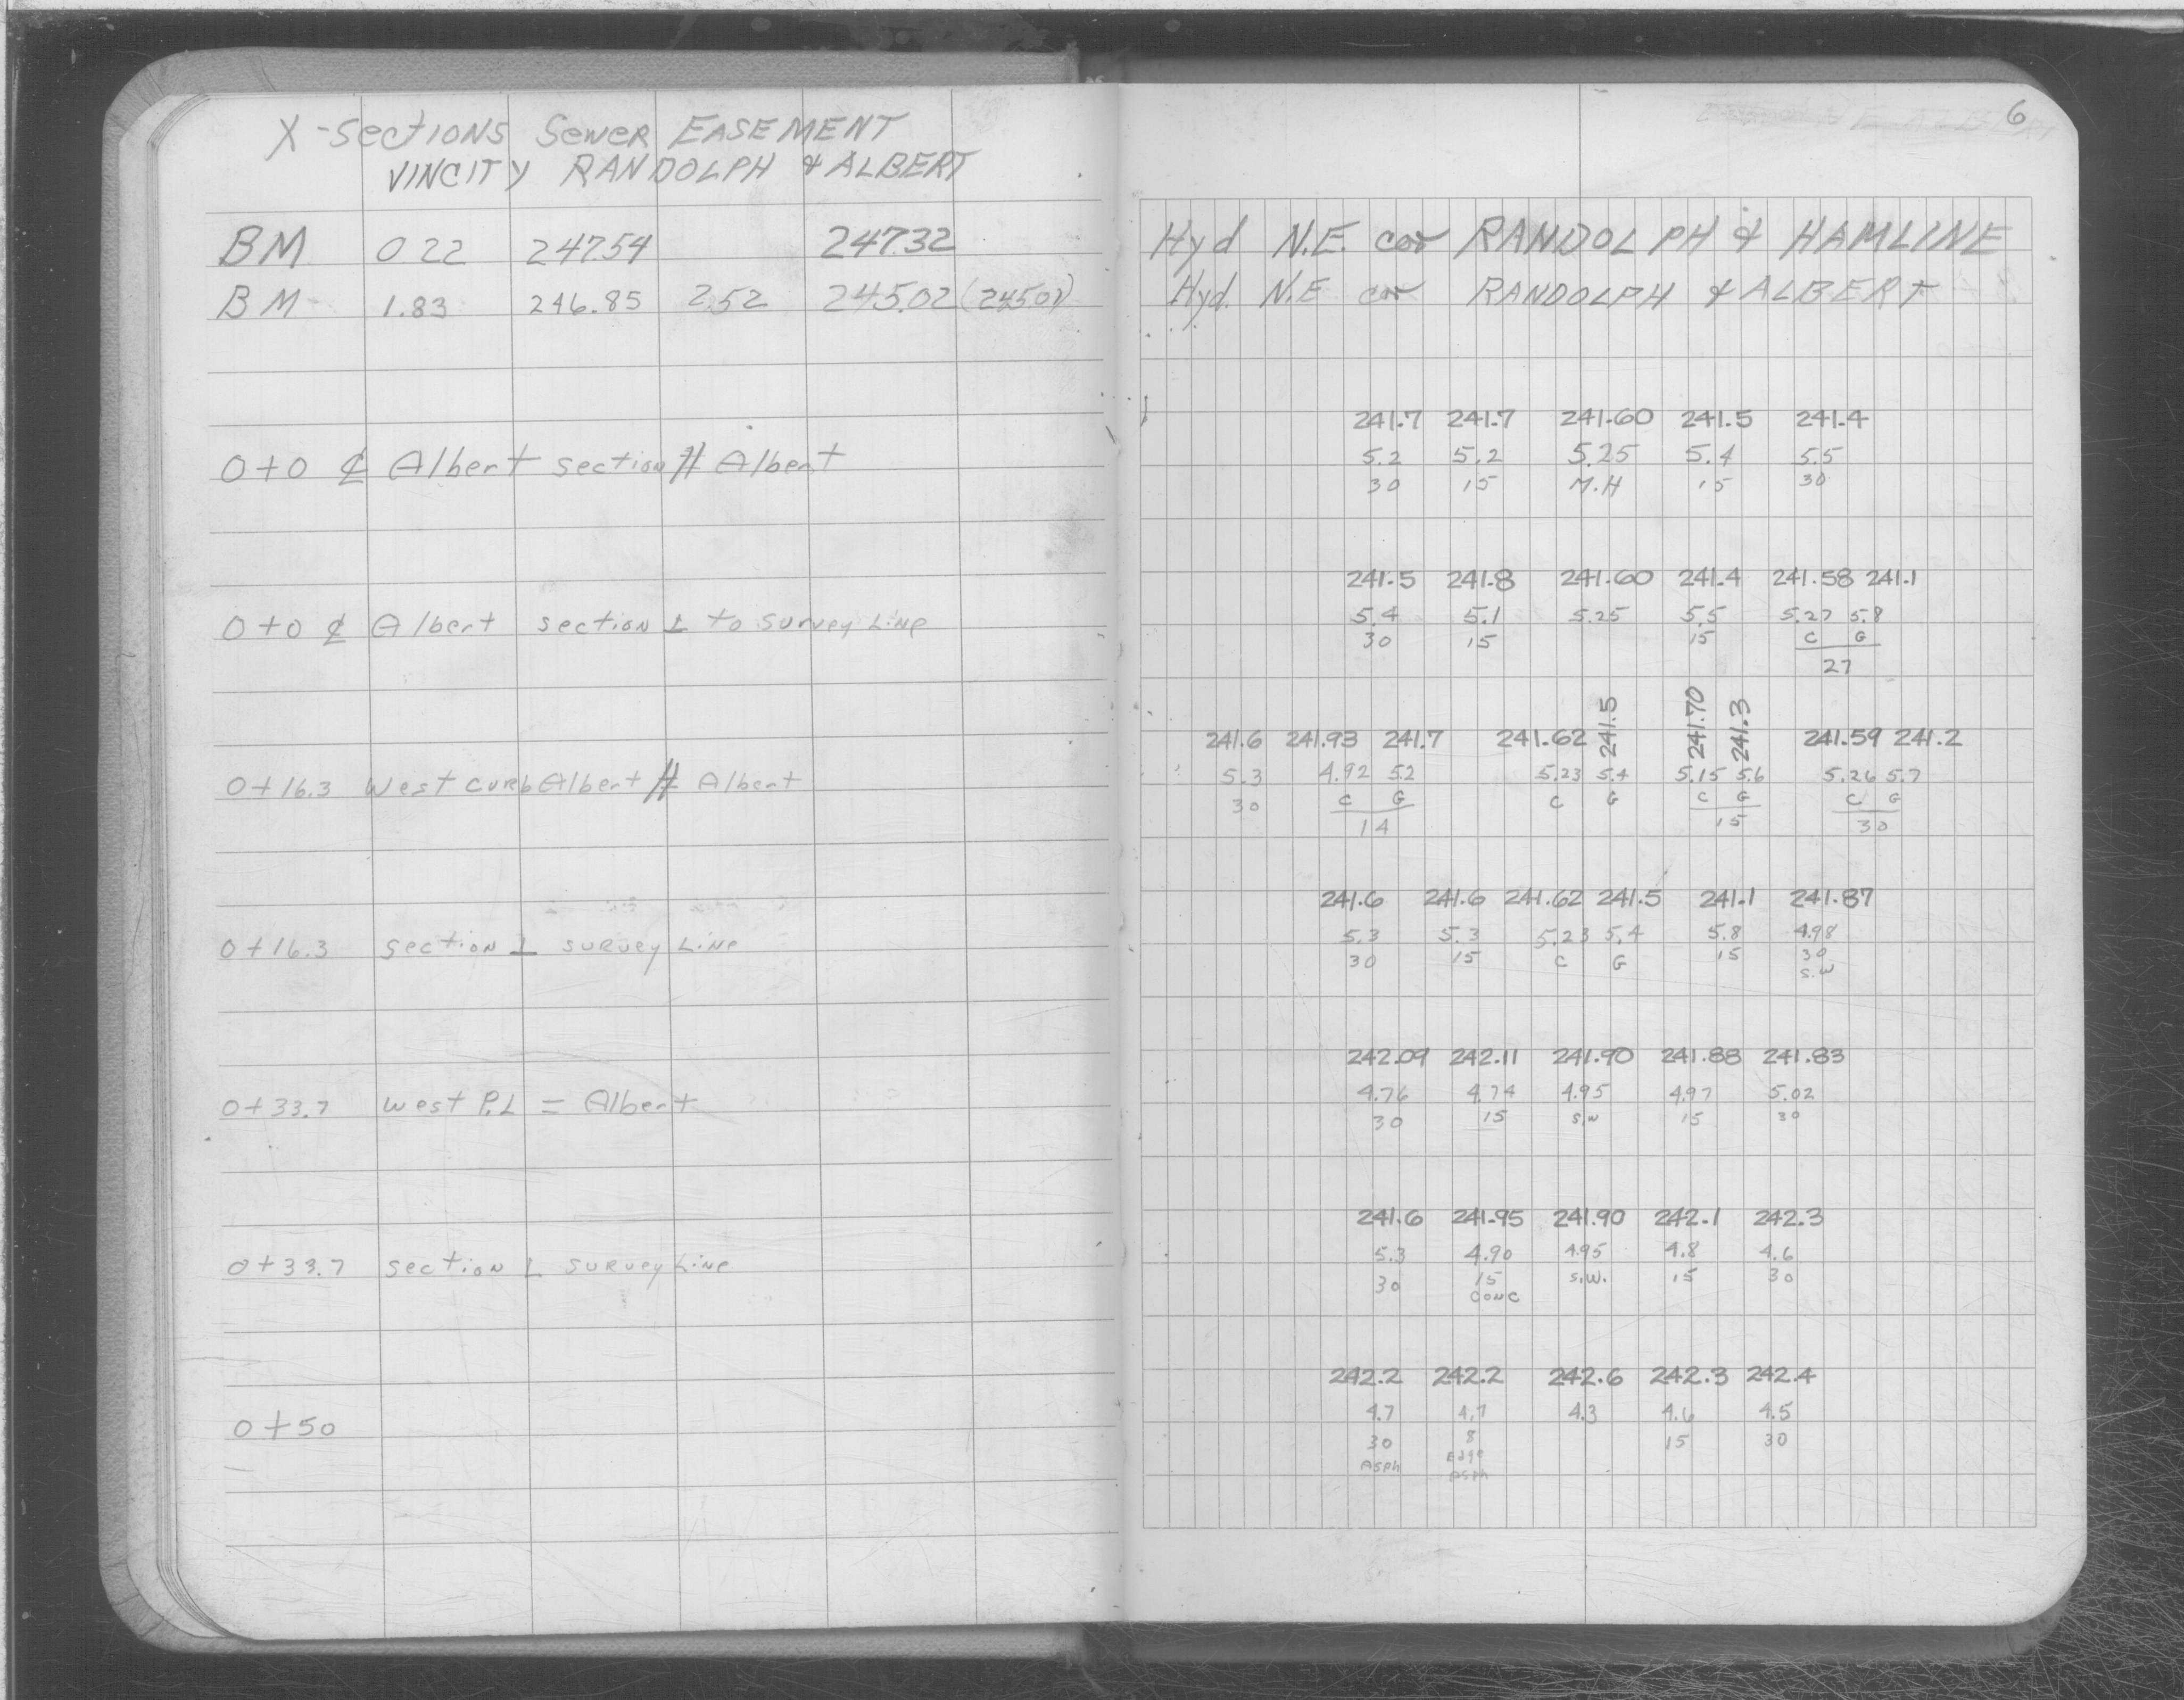 X-SECTIONS SEWER EASEMENT
VINCITY RANDOLPH & ALBERT
BM 0.22 247.54 247.32
BM 1.83 246.85 2.52 245.02 (245.01)
0+0 ℄ Albert section // Albert
0+0 ℄ Albert section ⊥ to survey Line
0+16.3 West curb Albert // Albert
0+16.3 section ⊥ survey Line
0+33.7 West P.L = Albert
0+33.7 section ⊥ survey Line
0+50
6
Hyd N.E. cor RANDOLPH & HAMLINE
Hyd. N.E cor RANDOLPH & ALBERT
241.7 241.7 241.60 241.5 241.4
5.2 5.2 5.25 5.4 5.5
30 15 M.H 15 30
241.5 241.8 241.60 241.4 241.58 241.1
5.4 5.1 5.25 5.5 5.27 5.8
30 15 15 C G
27
241.6 241.93 241.7 241.62 241.5 241.70 241.3 241.59 241.2
5.3 4.92 5.2 5.23 5.4 5.15 5.6 5.26 5.7
30 C G C G C G C G
14 15 30
241.6 241.6 241.62 241.5 241.1 241.87
5.3 5.3 5.23 5.4 5.8 4.98
30 15 C G 15 30
S.W
242.09 242.11 241.90 241.88 241.83
4.76 4.74 4.95 4.97 5.02
30 15 S.W 15 30
241.6 241.95 241.90 242.1 242.3
5.3 4.90 4.95 4.8 4.6
30 15 S.W. 15 30
CONC
242.2 242.2 242.6 242.3 242.4
4.7 4.7 4.3 4.6 4.5
30 8 15 30
Asph Edge
Asph